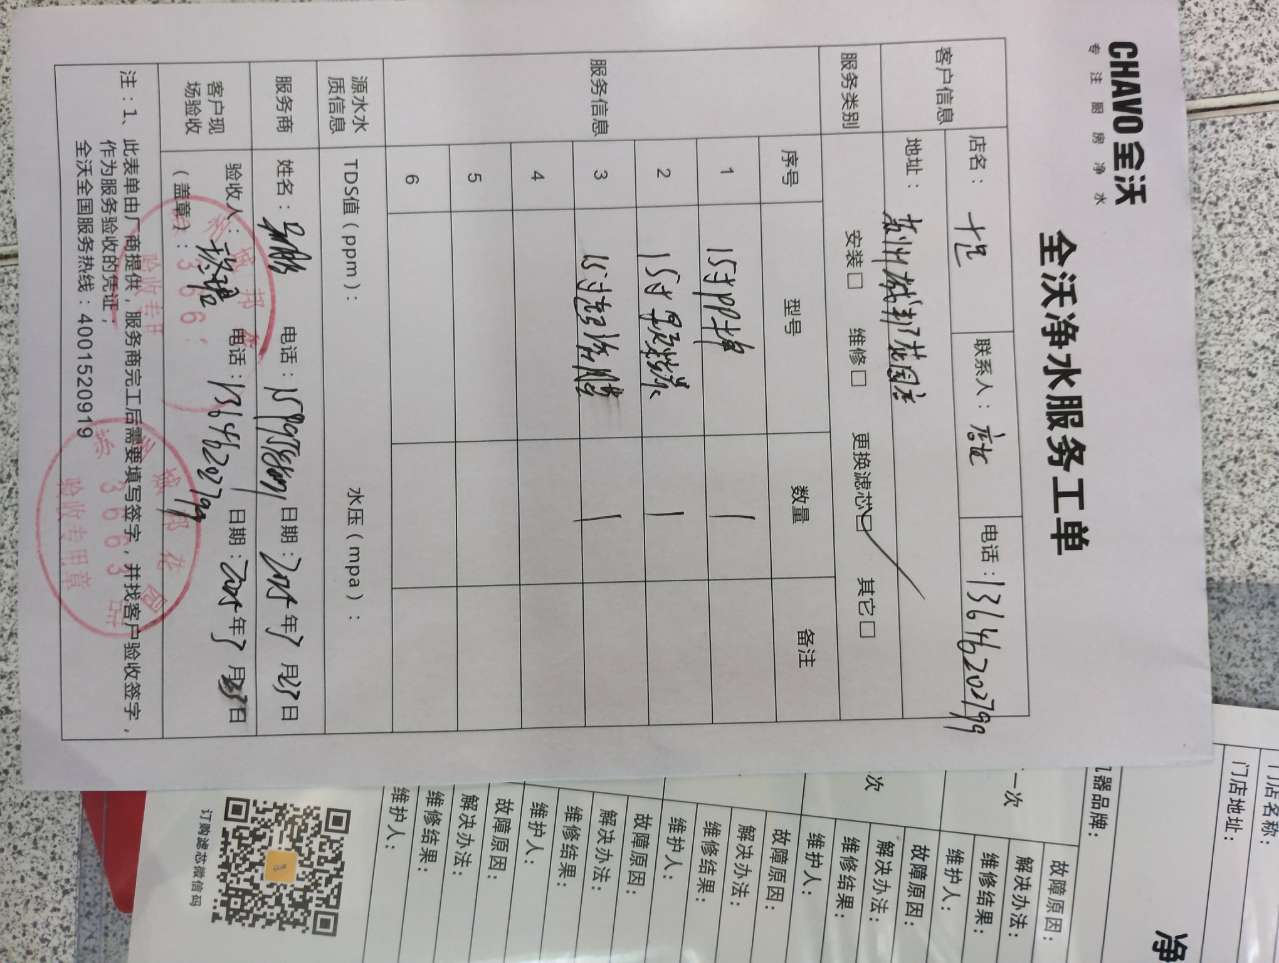 CHAVO全沃
专注厨房净水
全沃净水服务工单
客户信息
店名：十足
联系人：店长
电话：13646202799
地址：苏州城邦花园店
服务类别
安装□ 维修□ 更换滤芯☑ 其它□
服务信息
序号 型号 数量 备注
1 15寸PP棉 1
2 15寸 1
3 15寸超滤膜 1
4
5
6
源水水质信息
TDS值（ppm）： 水压（mpa）：
服务商
姓名： 电话： 日期：2025年7月25日
客户现场验收
验收人： 电话：13646202799 日期：2025年7月25日
（盖章）：
注：1、此表单由厂商提供，服务商完工后需要填写签字，并找客户验收签字，
作为服务验收的凭证；
全沃全国服务热线：4001520919
苏州城邦花园店
3663
验收专用章
门店名称：
门店地址：
机器品牌：
净
一次
故障原因：
解决办法：
维修结果：
维护人：
次
故障原因：
解决办法：
维修结果：
维护人：
故障原因：
解决办法：
维修结果：
维护人：
故障原因：
解决办法：
维修结果：
维护人：
故障原因：
解决办法：
维修结果：
维护人：
订购滤芯微信码